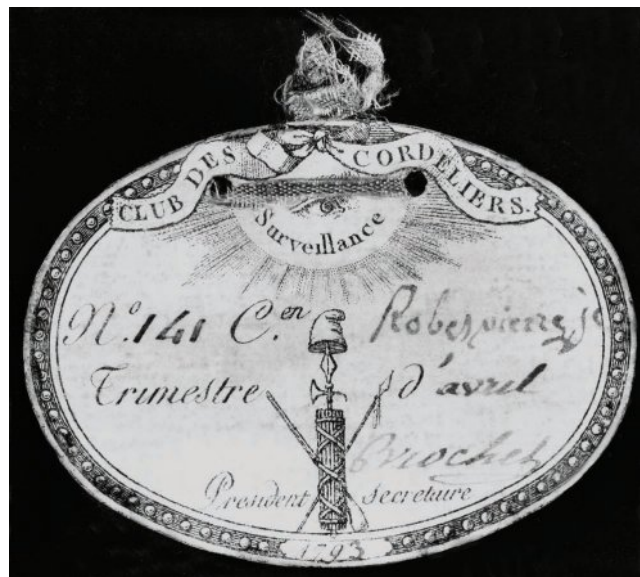 CLUB DES CORDELIERS.
Surveillance
N.º 141 C.en Robespierre je
Trimestre d'avril
Brochet
Président secretaire
1793